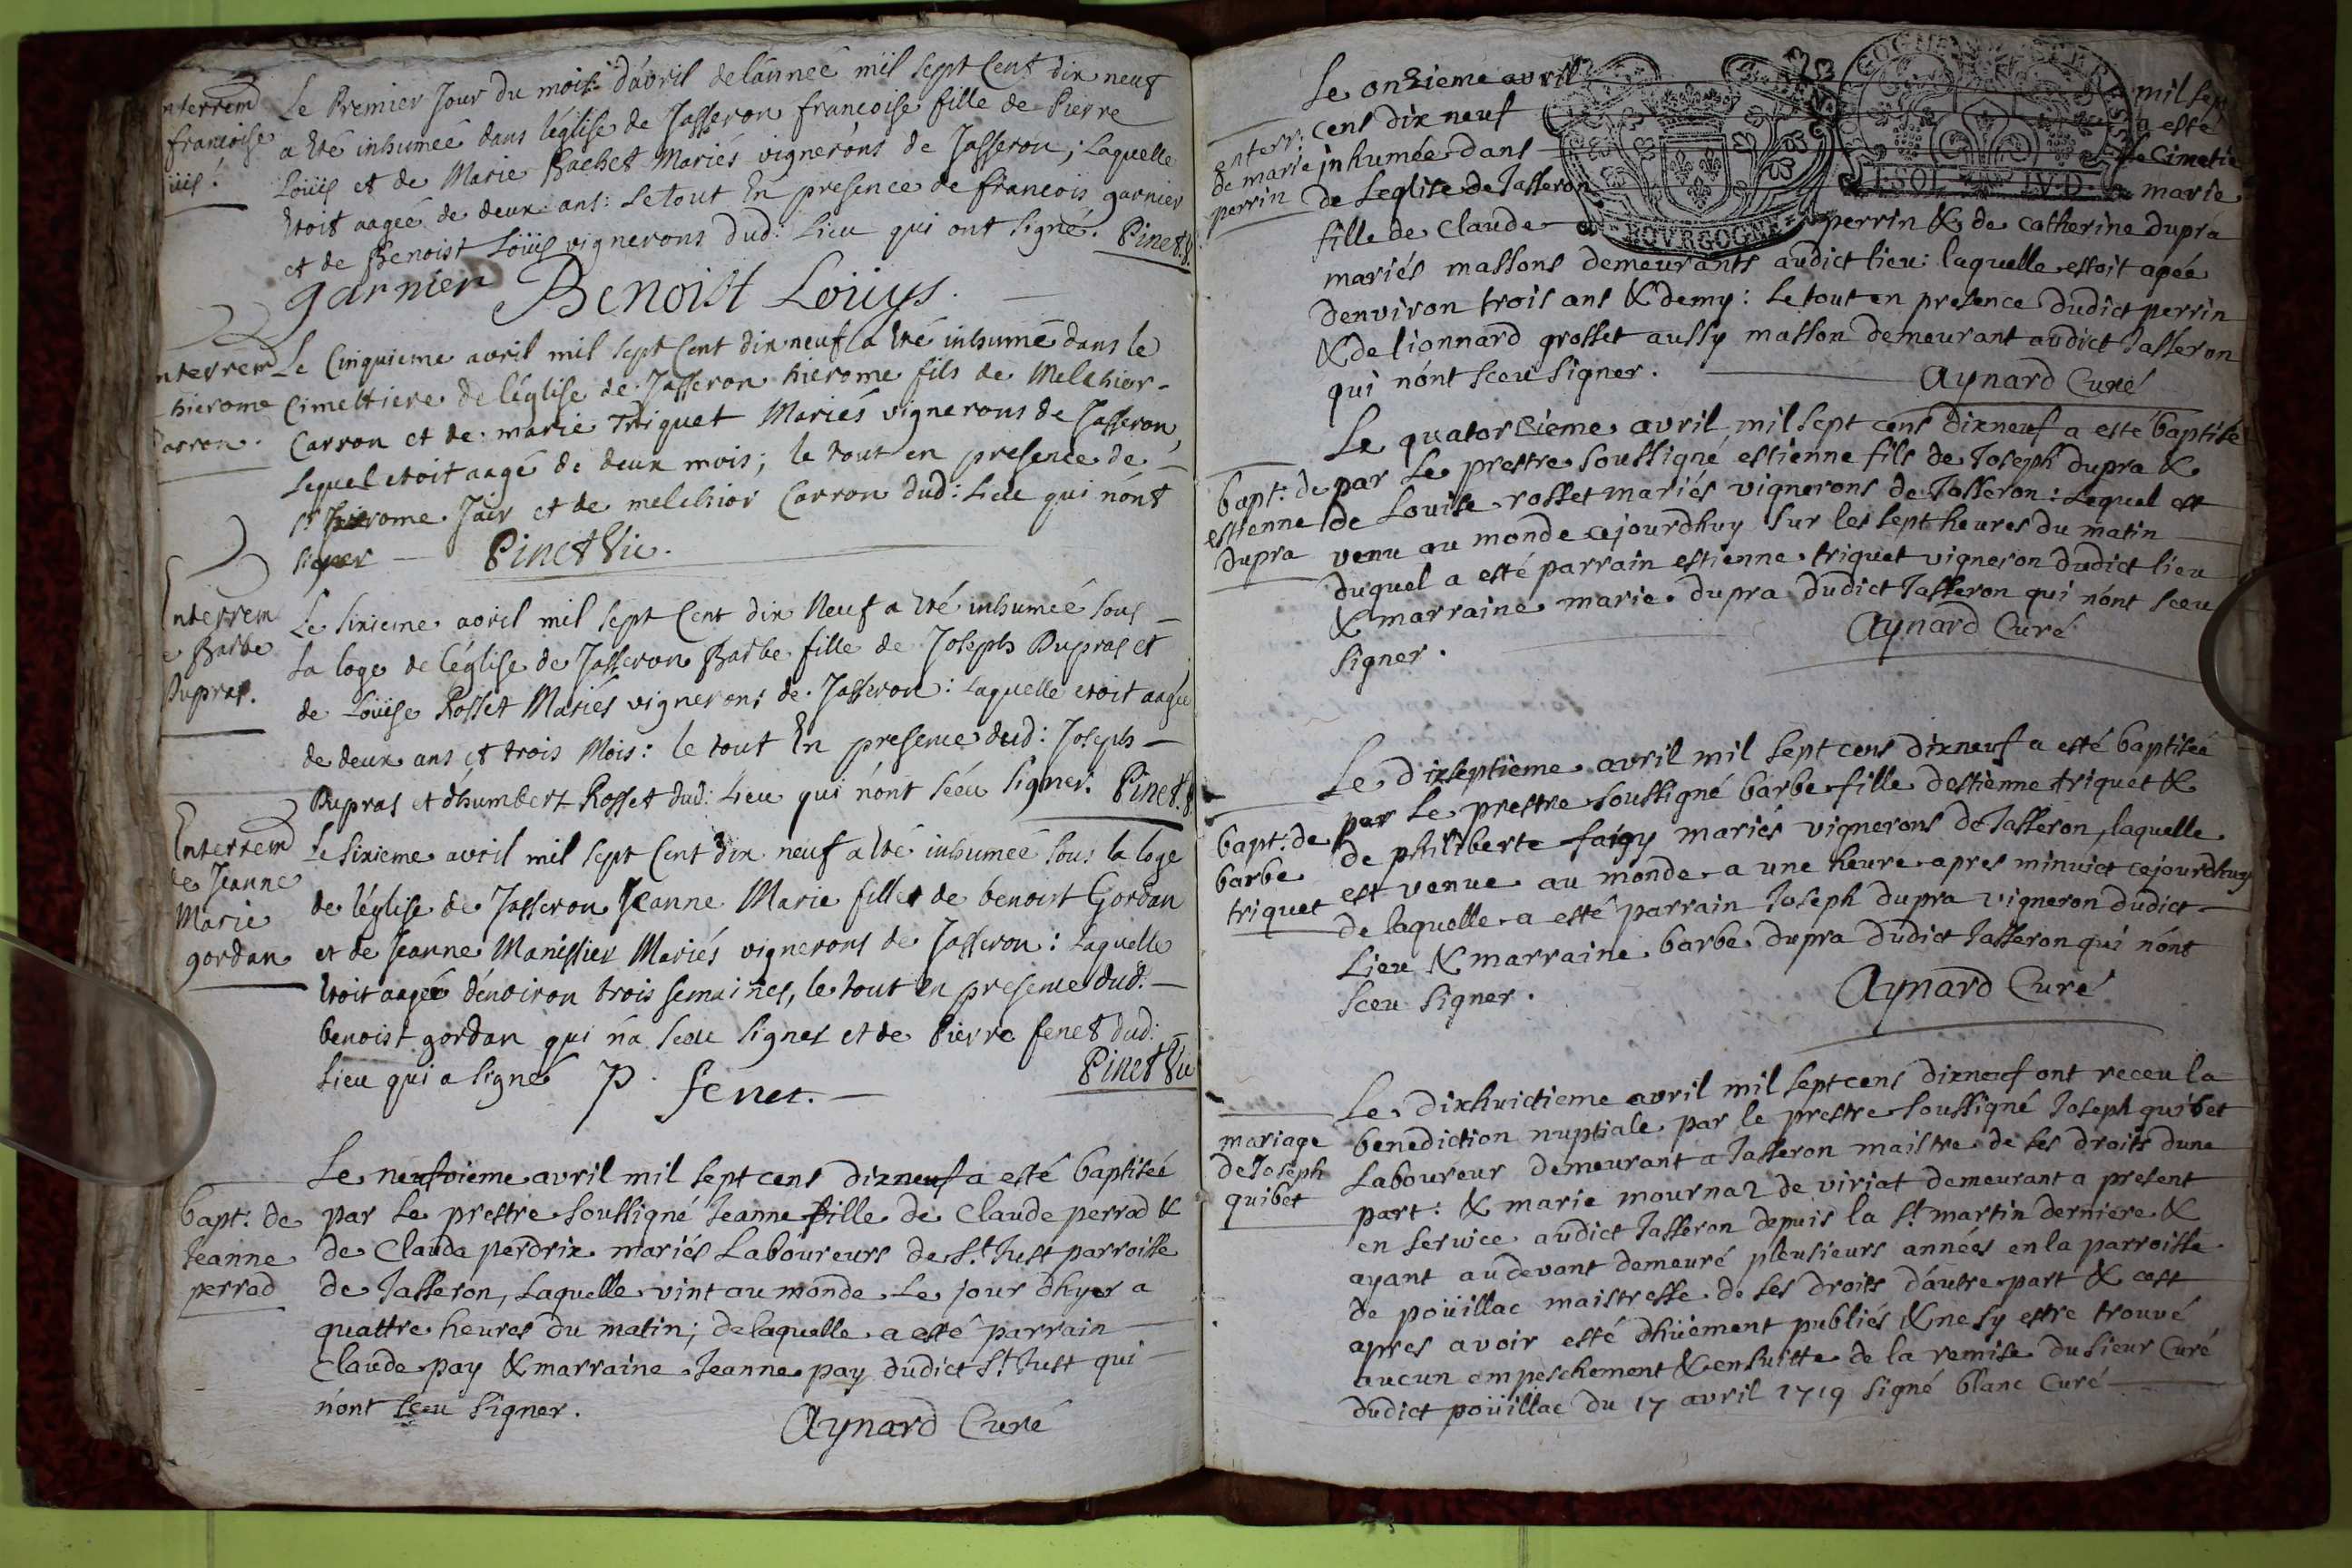 nterrem
francoise
üis.
Le Premier Jour du mois d'avril de lánneé mil sept Cent dix neuf
a été inhumeé dans léglise de Jasseron francoise fille de Pierre
Loüis et de Marie Bachet Mariés vignerons de Jasseron; Laquelle
étoit aageé de deux ans: Le tout En presence de francois garnier
et de Benoist Loüis vignerons dud: Lieu qui ont signé. Pinet
garnier Benoist Loüys.
nterrem
hierome
arron.
Le Cinquieme avril mil sept Cent dix neuf a été inhumé dans le
Cimeltiere de léglise de Jasseron hierome fils de Melchior
Carron et de marie Triquet Mariés vignerons de Jasseron,
Lequel etoit aagé de deux mois; le tout en presence de
Sr. hierome Jair et de melchior Carron dud: Lieu qui nónt
signer Pinet Vic.
Enterrem
e Barbe
Dupras.
Le sixieme avril mil sept Cent dix Neuf a été inhumeé sous
La loge de léglise de Jasseron Barbe fille de Joseph Dupras et
de Loüise Rosset Mariés vignerons de Jasseron: Laquelle etoit aageé
de deux ans et trois Mois: le tout En presence dud: Joseph
Dupras et d'humbert Rosset dud: Lieu qui nónt sçeu signer. Pinet
Enterrem
de Jeanne
Marie
gordan
Le sixieme avril mil sept Cent dix neuf a été inhumeé sous la loge
de léglise de Jasseron Jeanne Marie fille de benoist Gordan
et de Jeanne Manissier Mariés vignerons de Jasseron: Laquelle
étoit aageé dénviron trois semaines, le tout En presence dud:
benoist gordan qui ná sceu signer et de Pierre fenet dud:
Lieu qui a signé P. fenet. Pinet Vic
bapt: de
Jeanne
perrad
Le neufvieme avril mil sept cens dixneuf a esté baptiseé
par Le prestre soussigné Jeanne fille de Claude perrad &
de Clauda perdrix mariés Laboureurs de St. Just parroisse
de Jasseron, Laquelle vint au monde Le jour dhyer a
quattre heures du matin; de laquelle a esté parrain
Claude pay & marraine Jeanne pay dudict St. Just qui
nónt sceu signer.
Aynard Curé
enterr:
de marie
perrin
Le onzieme avril mil sept
cens dix neuf a esté
jnhumée dans le Cimetie
de Leglise de Jasseron marie
fille de Claude perrin & de catherine dupra
mariés massons demeurants audict lieu: laquelle estoit agée
denviron trois ans & demy: Le tout en presence dudict perrin
& de lionnard grosset aussy masson demeurant audict Jasseron
qui nónt sceu signer. Aynard Curé
bapt: de
estienne
dupra
Le quatorzieme avril mil sept cens dixneuf a esté baptisé
par Le prestre soussigné estienne fils de Joseph dupra &
de Louise rosset mariés vignerons de Jasseron: Lequel est
venu au monde cejourdhuy sur les sept heures du matin
duquel a esté parrain estienne triquet vigneron dudict lieu
& marraine marie dupra dudict Jasseron qui nónt sceu
signer. Aynard Curé
bapt: de
barbe
triquet
Le dixseptieme avril mil sept cens dixneuf a esté baptiseé
par Le prestre soussigné barbe fille destienne triquet &
de philiberte faigy mariés vignerons de Jasseron, laquelle
est venue au monde a une heure apres minuict cejourdhuy
de laquelle a esté parrain Joseph dupra vigneron dudict
Lieu & marraine barbe dupra dudict Jasseron qui nónt
sceu signer. Aynard Curé
mariage
de Joseph
quibet
Le dixhuictieme avril mil sept cens dixneuf ont receu la
benediction nuptiale par le prestre soussigné Joseph quibet
Laboureur demeurant a Jasseron maistre de ses droits dune
part: & marie mournaz de viriat demeurant a present
en service audict Jasseron depuis la St. martin derniere &
ayant audevant demeuré pleusieurs années en la parroisse
de poüillac maistresse de ses droits dáutre part & cest
apres avoir esté dhüement publiés & ne sy estre trouvé
aucun empeschement & ensuitte de la remise du sieur Curé
dudict poüillac du 17 avril 1719 signé blanc Curé
BOVRGOGNE